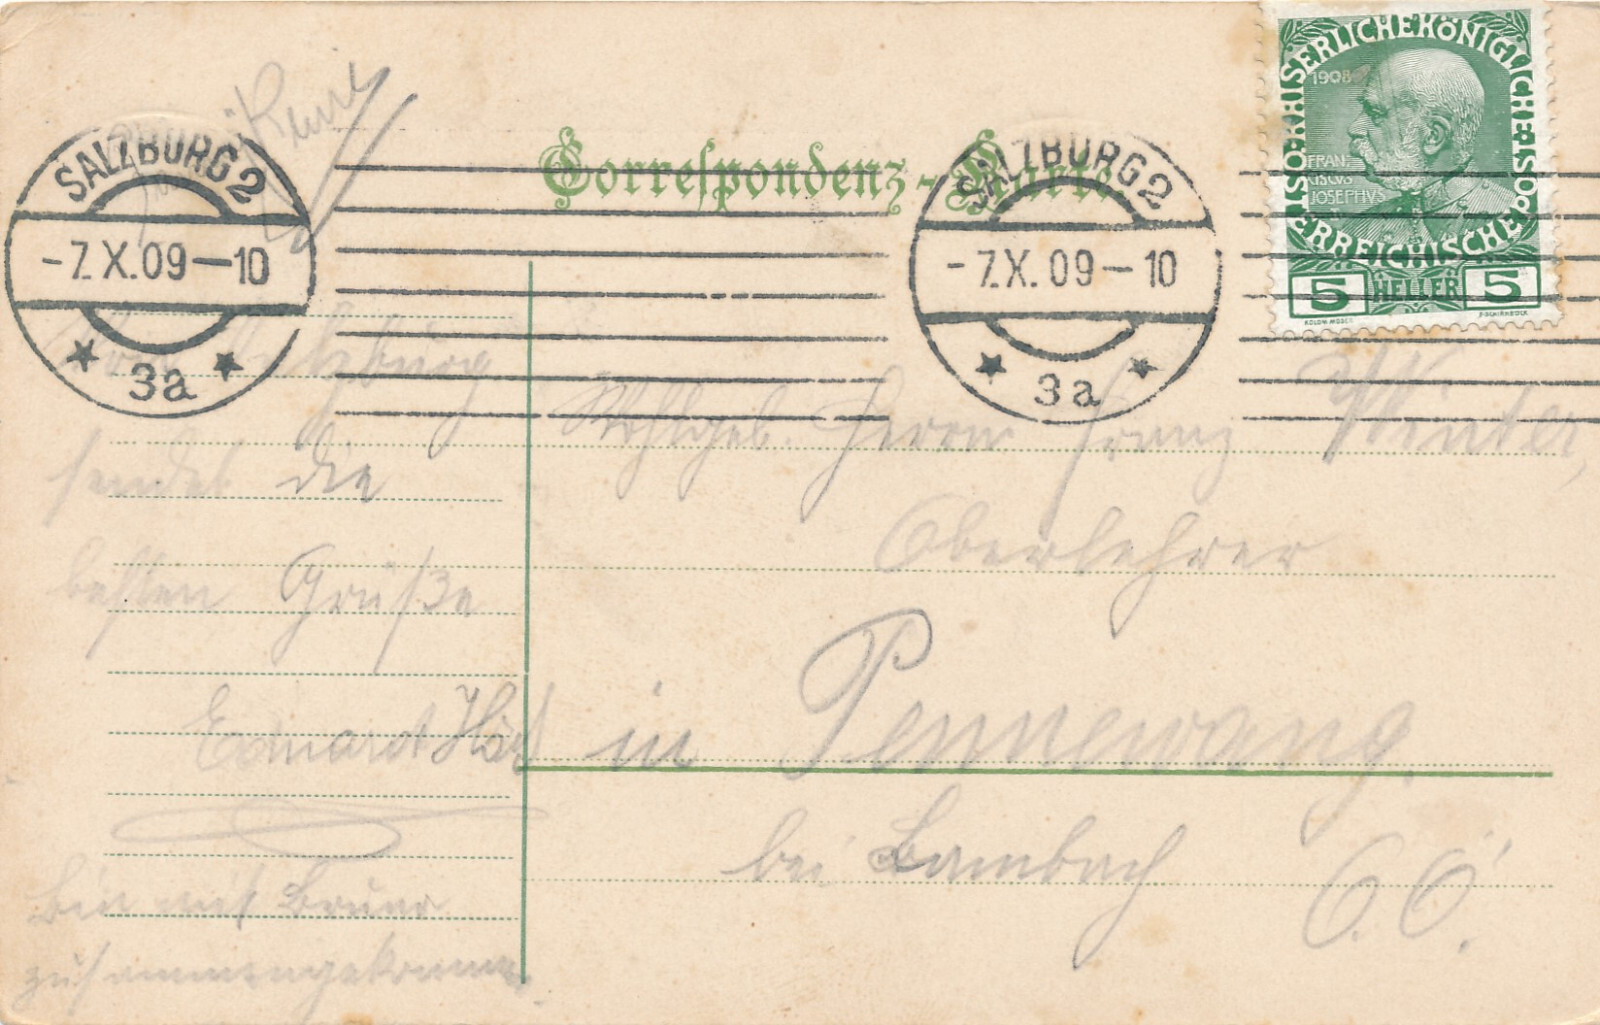 SALZBURG 2
-7.X.09-10
3a
Correspondenz-Karte
SALZBURG 2
-7.X.09-10
3a
KAISERLICHE KÖNIGLICHE ÖSTERREICHISCHE POST
1908
FRAN
CISCUS
JOSEPHVS
5 HELLER 5
KOLOM. MOSER
F. SCHIRNBÖCK
Von Salzburg
sendet die
besten Grüße
Eduard
Bin mit Bruder
zusammengekommen.
Wohlgeb. Herrn Franz Winter,
Oberlehrer
in Pennewang
bei Lambach
O.Ö.